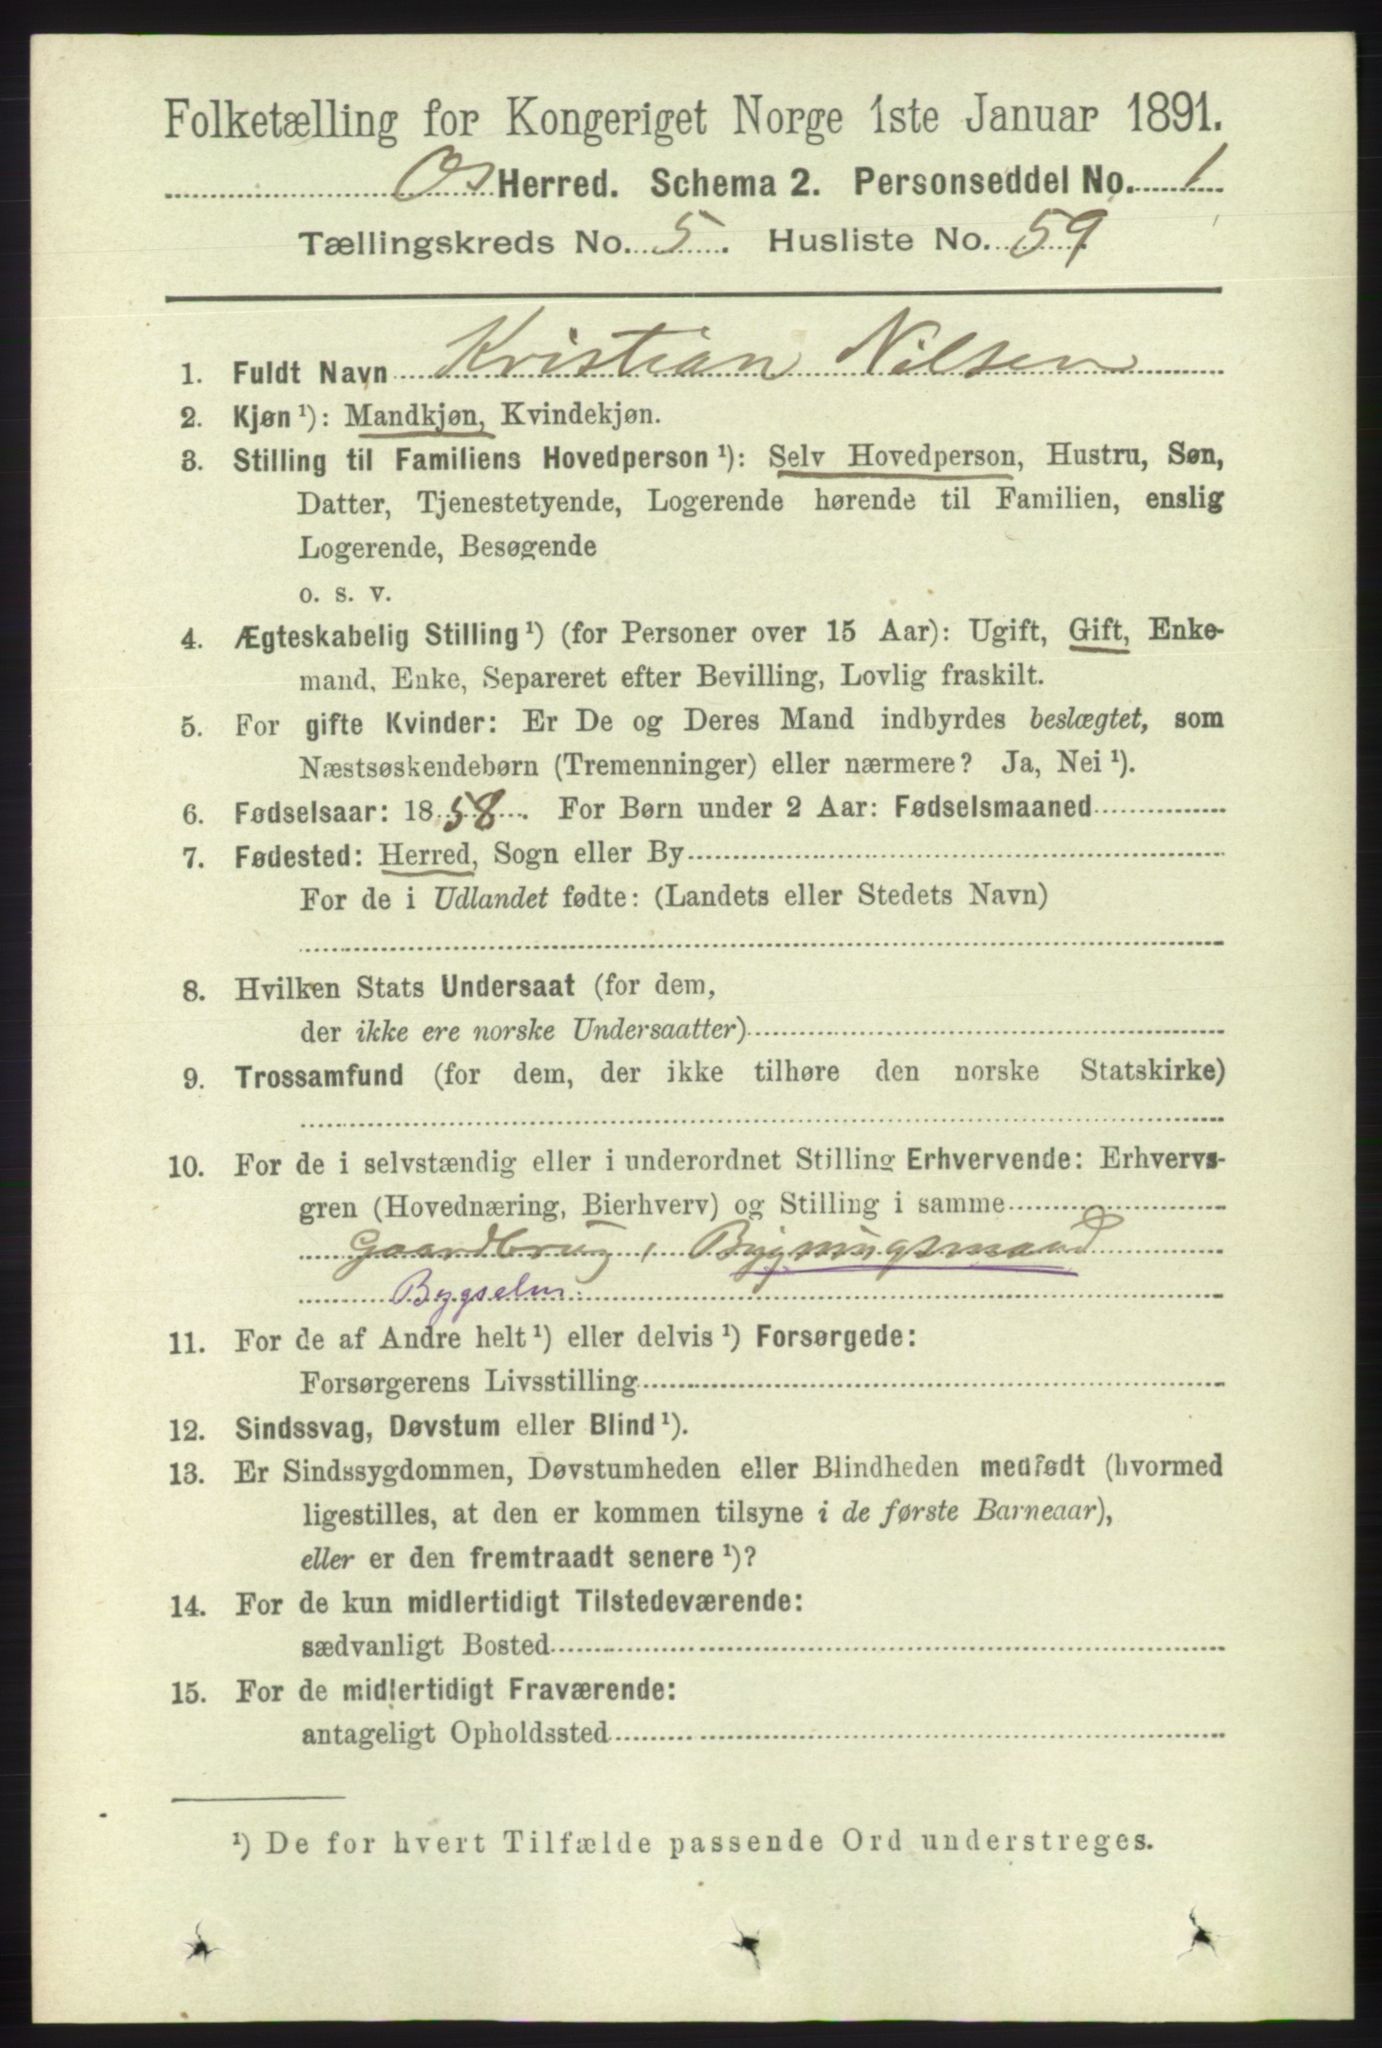 Folketælling for Kongeriget Norge 1ste Januar 1891.
Os Herred. Schema 2. Personseddel No. 1
Tællingskreds No. 5. Husliste No. 59
1. Fuldt Navn Kristian Nilsen
2. Kjøn ¹): Mandkjøn, Kvindekjøn.
3. Stilling til Familiens Hovedperson ¹): Selv Hovedperson, Hustru, Søn,
Datter, Tjenestetyende, Logerende hørende til Familien, enslig
Logerende, Besøgende
o. s. v.
4. Ægteskabelig Stilling ¹) (for Personer over 15 Aar): Ugift, Gift, Enke-
mand, Enke, Separeret efter Bevilling, Lovlig fraskilt.
5. For gifte Kvinder: Er De og Deres Mand indbyrdes beslægtet, som
Næstsøskendebørn (Tremenninger) eller nærmere? Ja, Nei ¹).
6. Fødselsaar: 1858. For Børn under 2 Aar: Fødselsmaaned
7. Fødested: Herred, Sogn eller By
For de i Udlandet fødte: (Landets eller Stedets Navn)
8. Hvilken Stats Undersaat (for dem,
der ikke ere norske Undersaatter)
9. Trossamfund (for dem, der ikke tilhøre den norske Statskirke)
10. For de i selvstændig eller i underordnet Stilling Erhvervende: Erhvervs-
gren (Hovednæring, Bierhverv) og Stilling i samme
Gaardbrug, Bygningsmand
Bygselm:
11. For de af Andre helt ¹) eller delvis ¹) Forsørgede:
Forsørgerens Livsstilling
12. Sindssvag, Døvstum eller Blind ¹).
13. Er Sindssygdommen, Døvstumheden eller Blindheden medfødt (hvormed
ligestilles, at den er kommen tilsyne i de første Barneaar),
eller er den fremtraadt senere ¹)?
14. For de kun midlertidigt Tilstedeværende:
sædvanligt Bosted
15. For de midlertidigt Fraværende:
antageligt Opholdssted
¹) De for hvert Tilfælde passende Ord understreges.